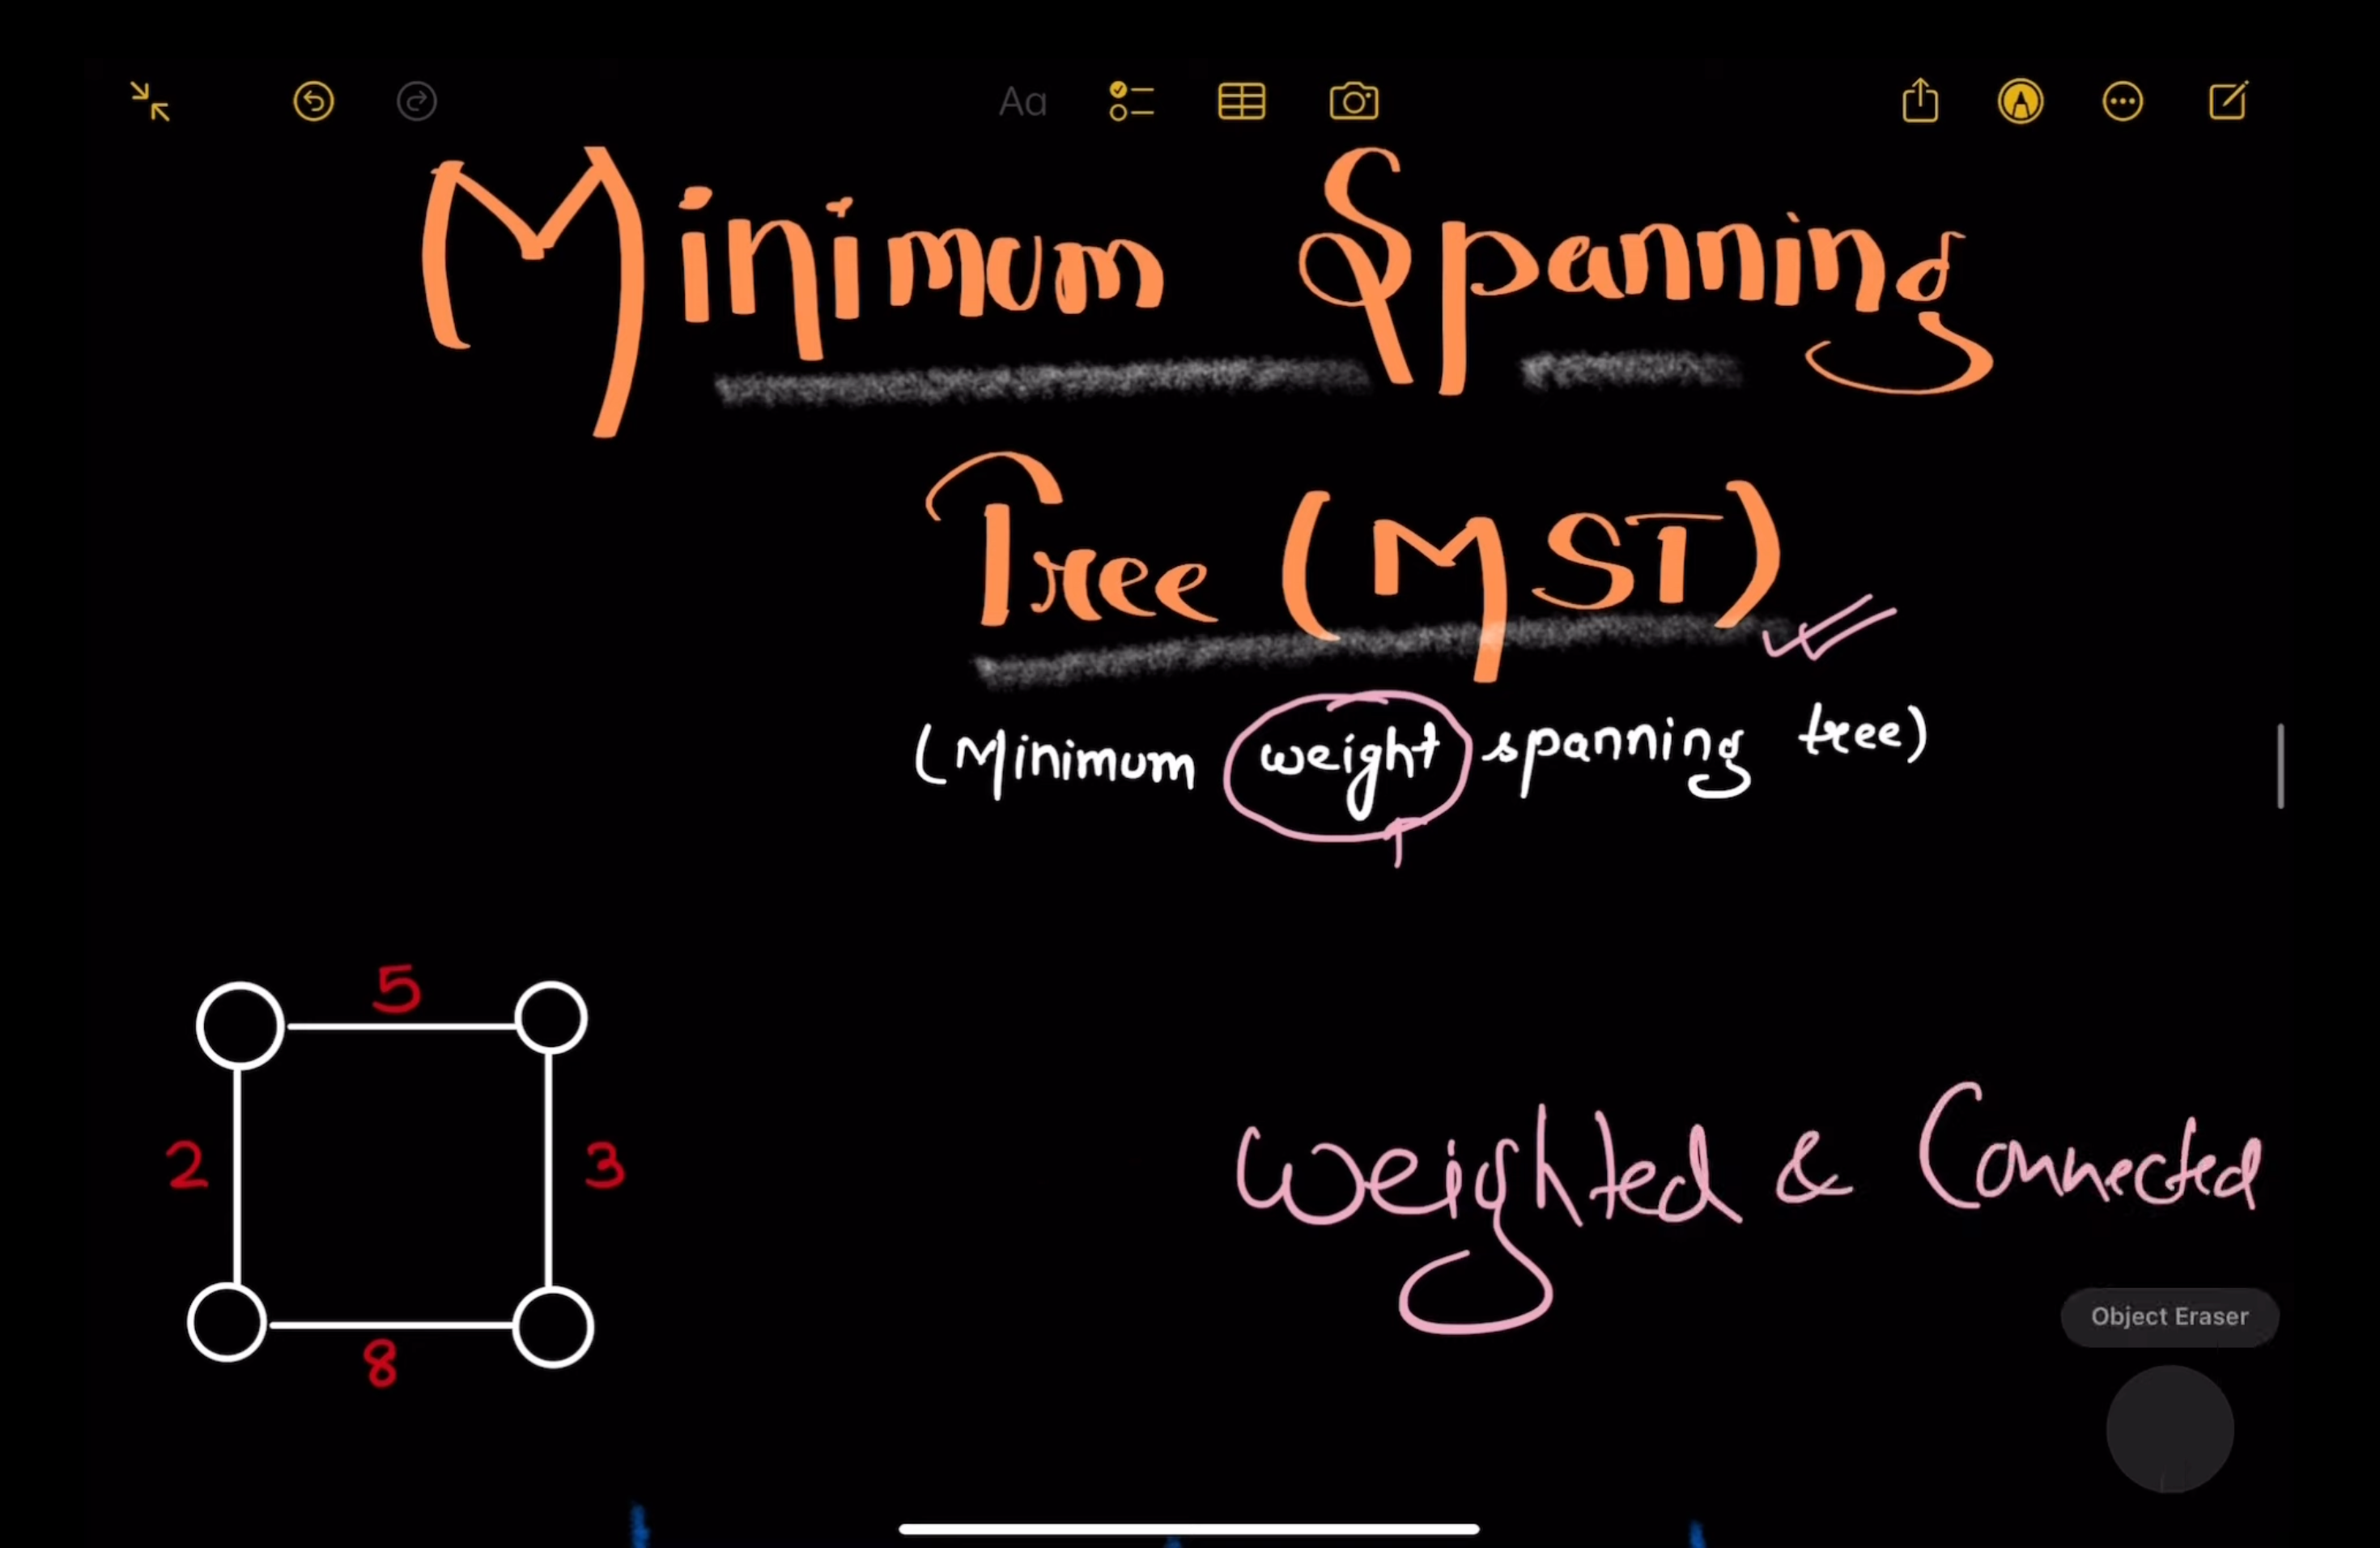 Aa
Minimum Spanning
Tree (MST)
(Minimum weight spanning tree)
5
2
3
8
Weighted & Connected
Object Eraser